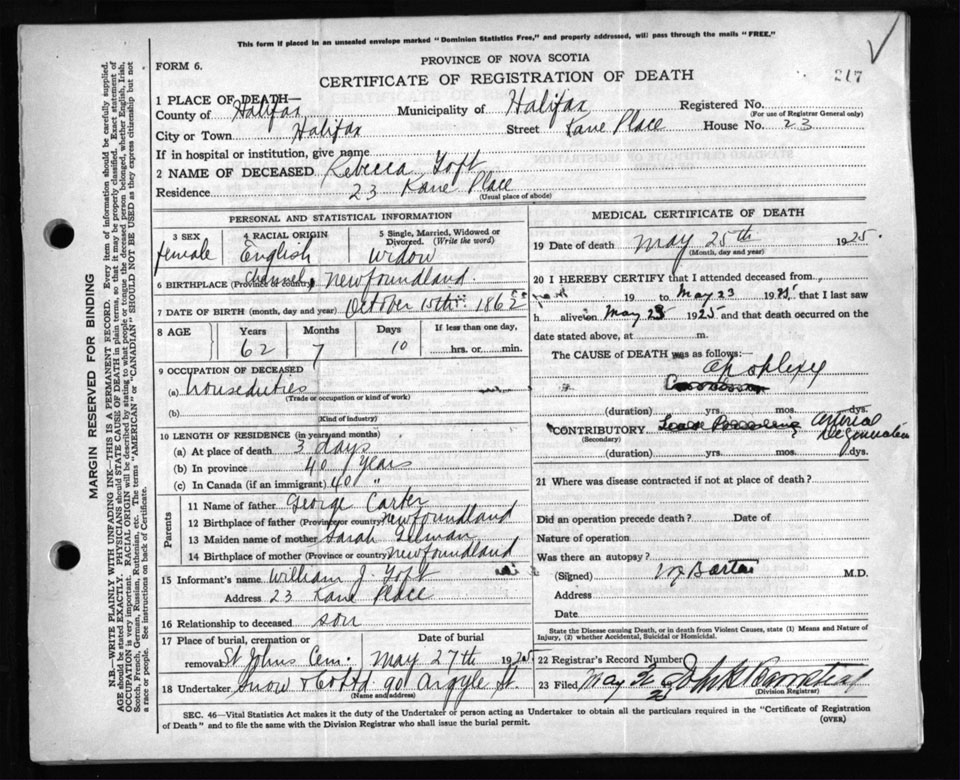 This form if placed in an unsealed envelope marked "Dominion Statistics Free," and properly addressed, will pass through the mails "FREE."
PROVINCE OF NOVA SCOTIA
FORM 6.
CERTIFICATE OF REGISTRATION OF DEATH
217
1 PLACE OF DEATH—
County of Halifax Municipality of Halifax Registered No.
(For use of Registrar General only)
City or Town Halifax Street Kane Place House No. 23
If in hospital or institution, give name
2 NAME OF DECEASED Rebecca Toft
Residence 23 Kane Place
(Usual place of abode)
PERSONAL AND STATISTICAL INFORMATION
3 SEX 4 RACIAL ORIGIN 5 Single, Married, Widowed or Divorced. (Write the word)
female English widow
6 BIRTHPLACE (Province or country) Channel, Newfoundland
7 DATE OF BIRTH (month, day and year) October 15th 1862
8 AGE Years Months Days If less than one day,
62 7 10 hrs. or min.
9 OCCUPATION OF DECEASED
(a) houseduties
(Trade or occupation or kind of work)
(b)
(Kind of industry)
10 LENGTH OF RESIDENCE (in years and months)
(a) At place of death 3 days
(b) In province 40 years
(c) In Canada (if an immigrant) 40 "
Parents
11 Name of father George Carter
12 Birthplace of father (Province or country) Newfoundland
13 Maiden name of mother Sarah
14 Birthplace of mother (Province or country) Newfoundland
15 Informant's name William J. Toft
Address 23 Kane Place
16 Relationship to deceased son
17 Place of burial, cremation or removal Date of burial
St Johns Cem. May 27th 1925
18 Undertaker Snow & Co Ltd 90 Argyle St.
(Name and address)
MEDICAL CERTIFICATE OF DEATH
19 Date of death May 25th 1925
(Month, day and year)
20 I HEREBY CERTIFY that I attended deceased from
19 to May 23 1925 that I last saw
h alive on May 23 1925 and that death occurred on the
date stated above, at m.
The CAUSE OF DEATH was as follows:
apoplexy
(duration) yrs. mos. dys.
CONTRIBUTORY arterial Degeneration
(Secondary)
(duration) yrs. mos. dys.
21 Where was disease contracted if not at place of death?
Did an operation precede death? Date of
Nature of operation
Was there an autopsy?
(Signed) M.D.
Address
Date
State the Disease causing Death, or in death from Violent Causes, state (1) Means and Nature of Injury, (2) whether Accidental, Suicidal or Homicidal.
22 Registrar's Record Number
23 Filed May
(Division Registrar)
SEC. 46—Vital Statistics Act makes it the duty of the Undertaker or person acting as Undertaker to obtain all the particulars required in the "Certificate of Registration of Death" and to file the same with the Division Registrar who shall issue the burial permit.
(OVER)
MARGIN RESERVED FOR BINDING
N.B.—WRITE PLAINLY WITH UNFADING INK—THIS IS A PERMANENT RECORD. Every item of information should be carefully supplied.
AGE should be stated EXACTLY. PHYSICIANS should STATE CAUSE OF DEATH in plain terms, so that it may be properly classified. Exact statement of
OCCUPATION is very important. RACIAL ORIGIN will be described by stating to what people or tongue the deceased person belonged, whether English, Irish,
Scotch, French, German, Russian, Ruthenian, etc. The terms "AMERICAN" or "CANADIAN" SHOULD NOT BE USED as they express citizenship but not
a race or people. See instructions on back of Certificate.